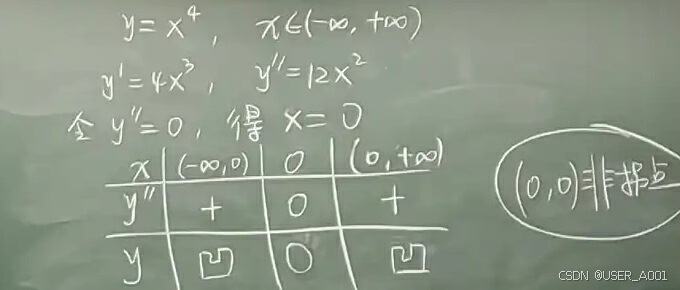 y = x⁴, x∈(-∞, +∞)
y' = 4x³, y'' = 12x²
令 y'' = 0, 得 x = 0
x (-∞,0) 0 (0,+∞)
y'' + 0 +
(0,0)非拐点
y 凹 0 凹
CSDN @USER_A001